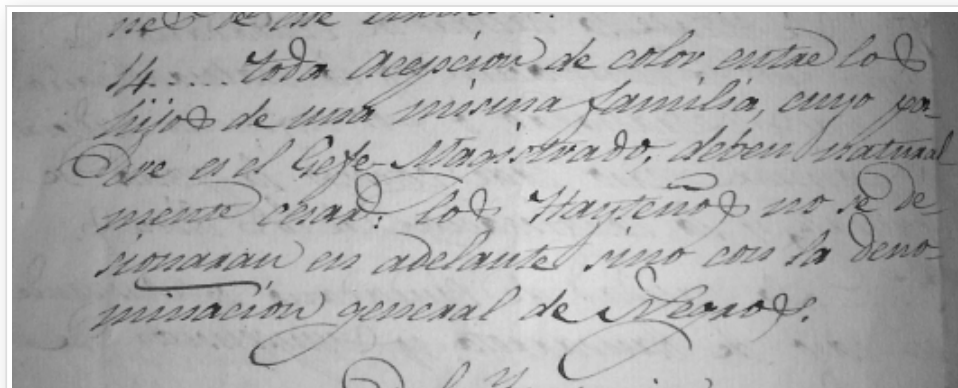 nes de este
14..... toda Acepcion de color entre los
hijos de una misma familia, cuyo pa-
dre es el Gefe-Magistrado, deben natural
mente cesar: los Hayteños no se de-
sionaran en adelante sino con la deno-
minacion general de Negros.